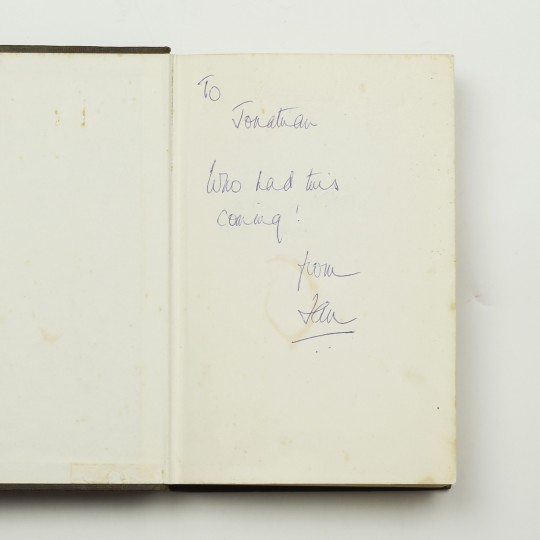 To
Jonathan
Who had this
coming!
from
Ian